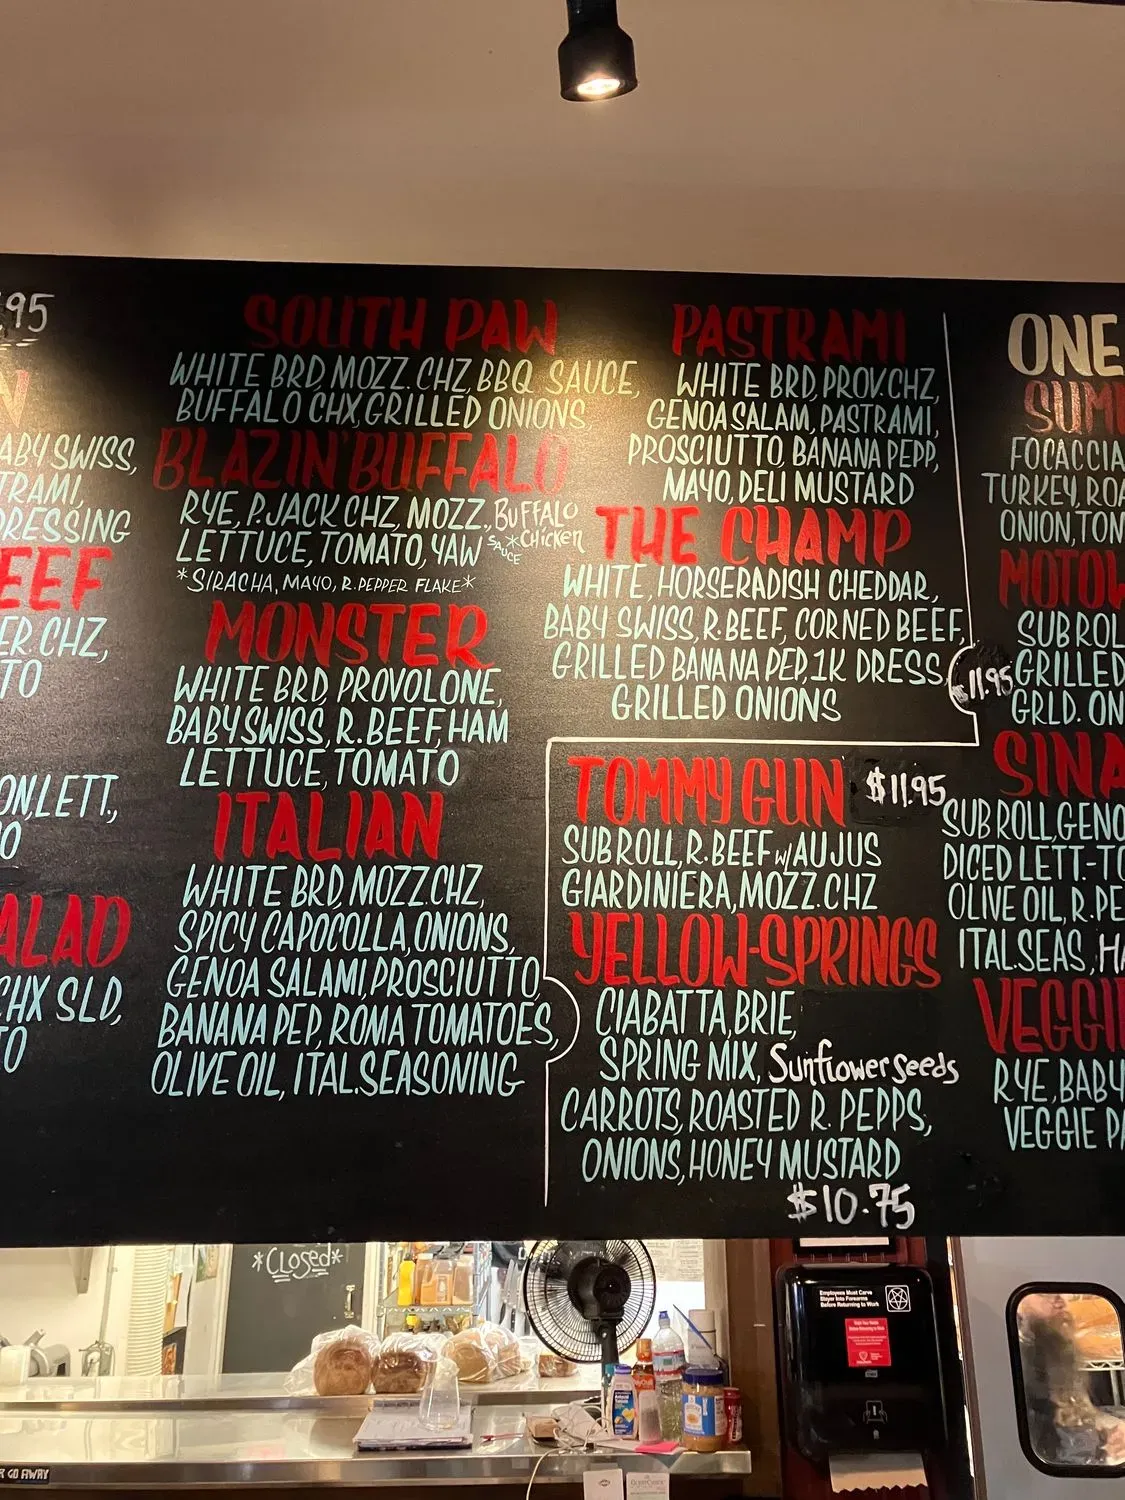 .95
N
BABY SWISS,
TRAMI,
DRESSING
EEF
ER CHZ,
TO
ON, LETT.,
O
ALAD
CHX SLD,
TO
SOUTH PAW
WHITE BRD, MOZZ. CHZ, BBQ SAUCE,
BUFFALO CHX, GRILLED ONIONS
BLAZIN' BUFFALO
RYE, P. JACK CHZ, MOZZ., BUFFALO
LETTUCE, TOMATO, YAW SAUCE *Chicken
*SIRACHA, MAYO, R. PEPPER FLAKE*
MONSTER
WHITE BRD, PROVOLONE,
BABY SWISS, R. BEEF, HAM
LETTUCE, TOMATO
ITALIAN
WHITE BRD, MOZZ.CHZ,
SPICY CAPOCOLLA, ONIONS,
GENOA SALAMI, PROSCIUTTO,
BANANA PEP, ROMA TOMATOES,
OLIVE OIL, ITAL.SEASONING
PASTRAMI
WHITE BRD, PROV.CHZ,
GENOA SALAM, PASTRAMI,
PROSCIUTTO, BANANA PEPP,
MAYO, DELI MUSTARD
THE CHAMP
WHITE, HORSERADISH CHEDDAR,
BABY SWISS, R. BEEF, CORNED BEEF,
GRILLED BANANA PEP, 1K DRESS,
GRILLED ONIONS
$11.95
TOMMY GUN $11.95
SUB ROLL, R. BEEF w/ AU JUS
GIARDINIERA, MOZZ. CHZ
YELLOW-SPRINGS
CIABATTA, BRIE,
SPRING MIX, Sunflower seeds
CARROTS, ROASTED R. PEPPS,
ONIONS, HONEY MUSTARD
$10.75
ONE
SUM
FOCACCIA
TURKEY, ROA
ONION, TOM
MOTOW
SUB ROL
GRILLED
GRLD. ON
SINA
SUB ROLL, GENO
DICED LETT.-TO
OLIVE OIL, R.PE
ITAL.SEAS, HA
VEGGI
RYE, BABY
VEGGIE PA
*CLOSed*
Employees Must Carve
Slayer Into Forearms
Before Returning to Work
R GO AWAY